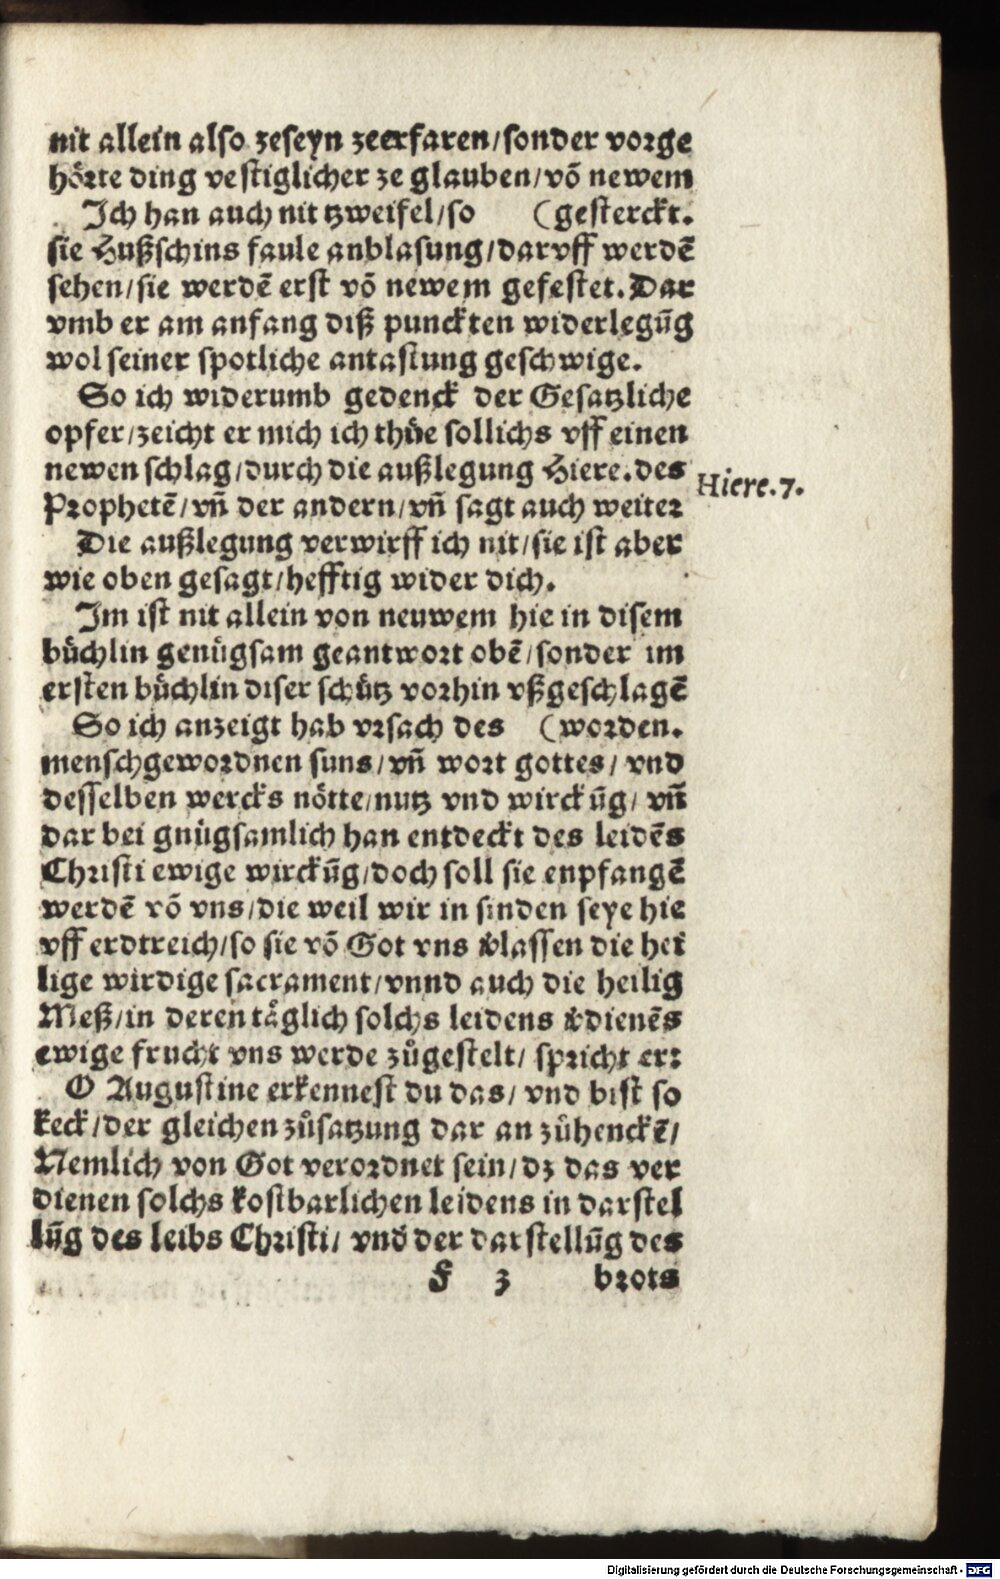 nit allein also zeseyn zeerfaren/sonder vorge
hoͤrte ding vestiglicher ze glauben/võ newem
Ich han auch nit tzweifel/so (gesterckt.
sie Hußschins faule anblasung/daruff werdẽ
sehen/sie werdẽ erst võ newem gefestet. Dar
vmb er am anfang diß punckten widerlegũg
wol seiner spotliche antastung geschwige.
So ich widerumb gedenck der Gesatzliche
opfer/zeicht er mich ich thuͤe sollichs vff einen
newen schlag/durch die außlegung Hiere.des
Prophetẽ/vñ der andern/vñ sagt auch weiter
Hiere.7.
Die außlegung verwirff ich nit/sie ist aber
wie oben gesagt/hefftig wider dich.
Im ist nit allein von neuwem hie in disem
buͤchlin genuͤgsam geantwort obẽ/sonder im
ersten buͤchlin diser schuͤtz vorhin vßgeschlagẽ
So ich anzeigt hab vrsach des (worden.
menschgewordnen suns/vñ wort gottes/vnd
desselben wercks noͤtte/nutz vnd wirckũg/vñ
dar bei gnuͤgsamlich han entdeckt des leidẽs
Christi ewige wirckũg/doch soll sie enpfangẽ
werdẽ võ vns/die weil wir in sinden seye hie
vff erdtreich/so sie võ Got vns v̄lassen die hei
lige wirdige sacrament/vnnd auch die heilig
Meß/in deren taͤglich solchs leidens v̄dienẽs
ewige frucht vns werde zuͦgestelt/ spricht er:
O Augustine erkennest du das/ vnd bist so
keck/der gleichen zuͦsatzung dar an zuͦhenckẽ/
Nemlich von Got verordnet sein/dz das ver
dienen solchs kostbarlichen leidens in darstel
lũg des leibs Christi/ vnd der darstellũg des
F 3 brots
Digitalisierung gefördert durch die Deutsche Forschungsgemeinschaft - DFG